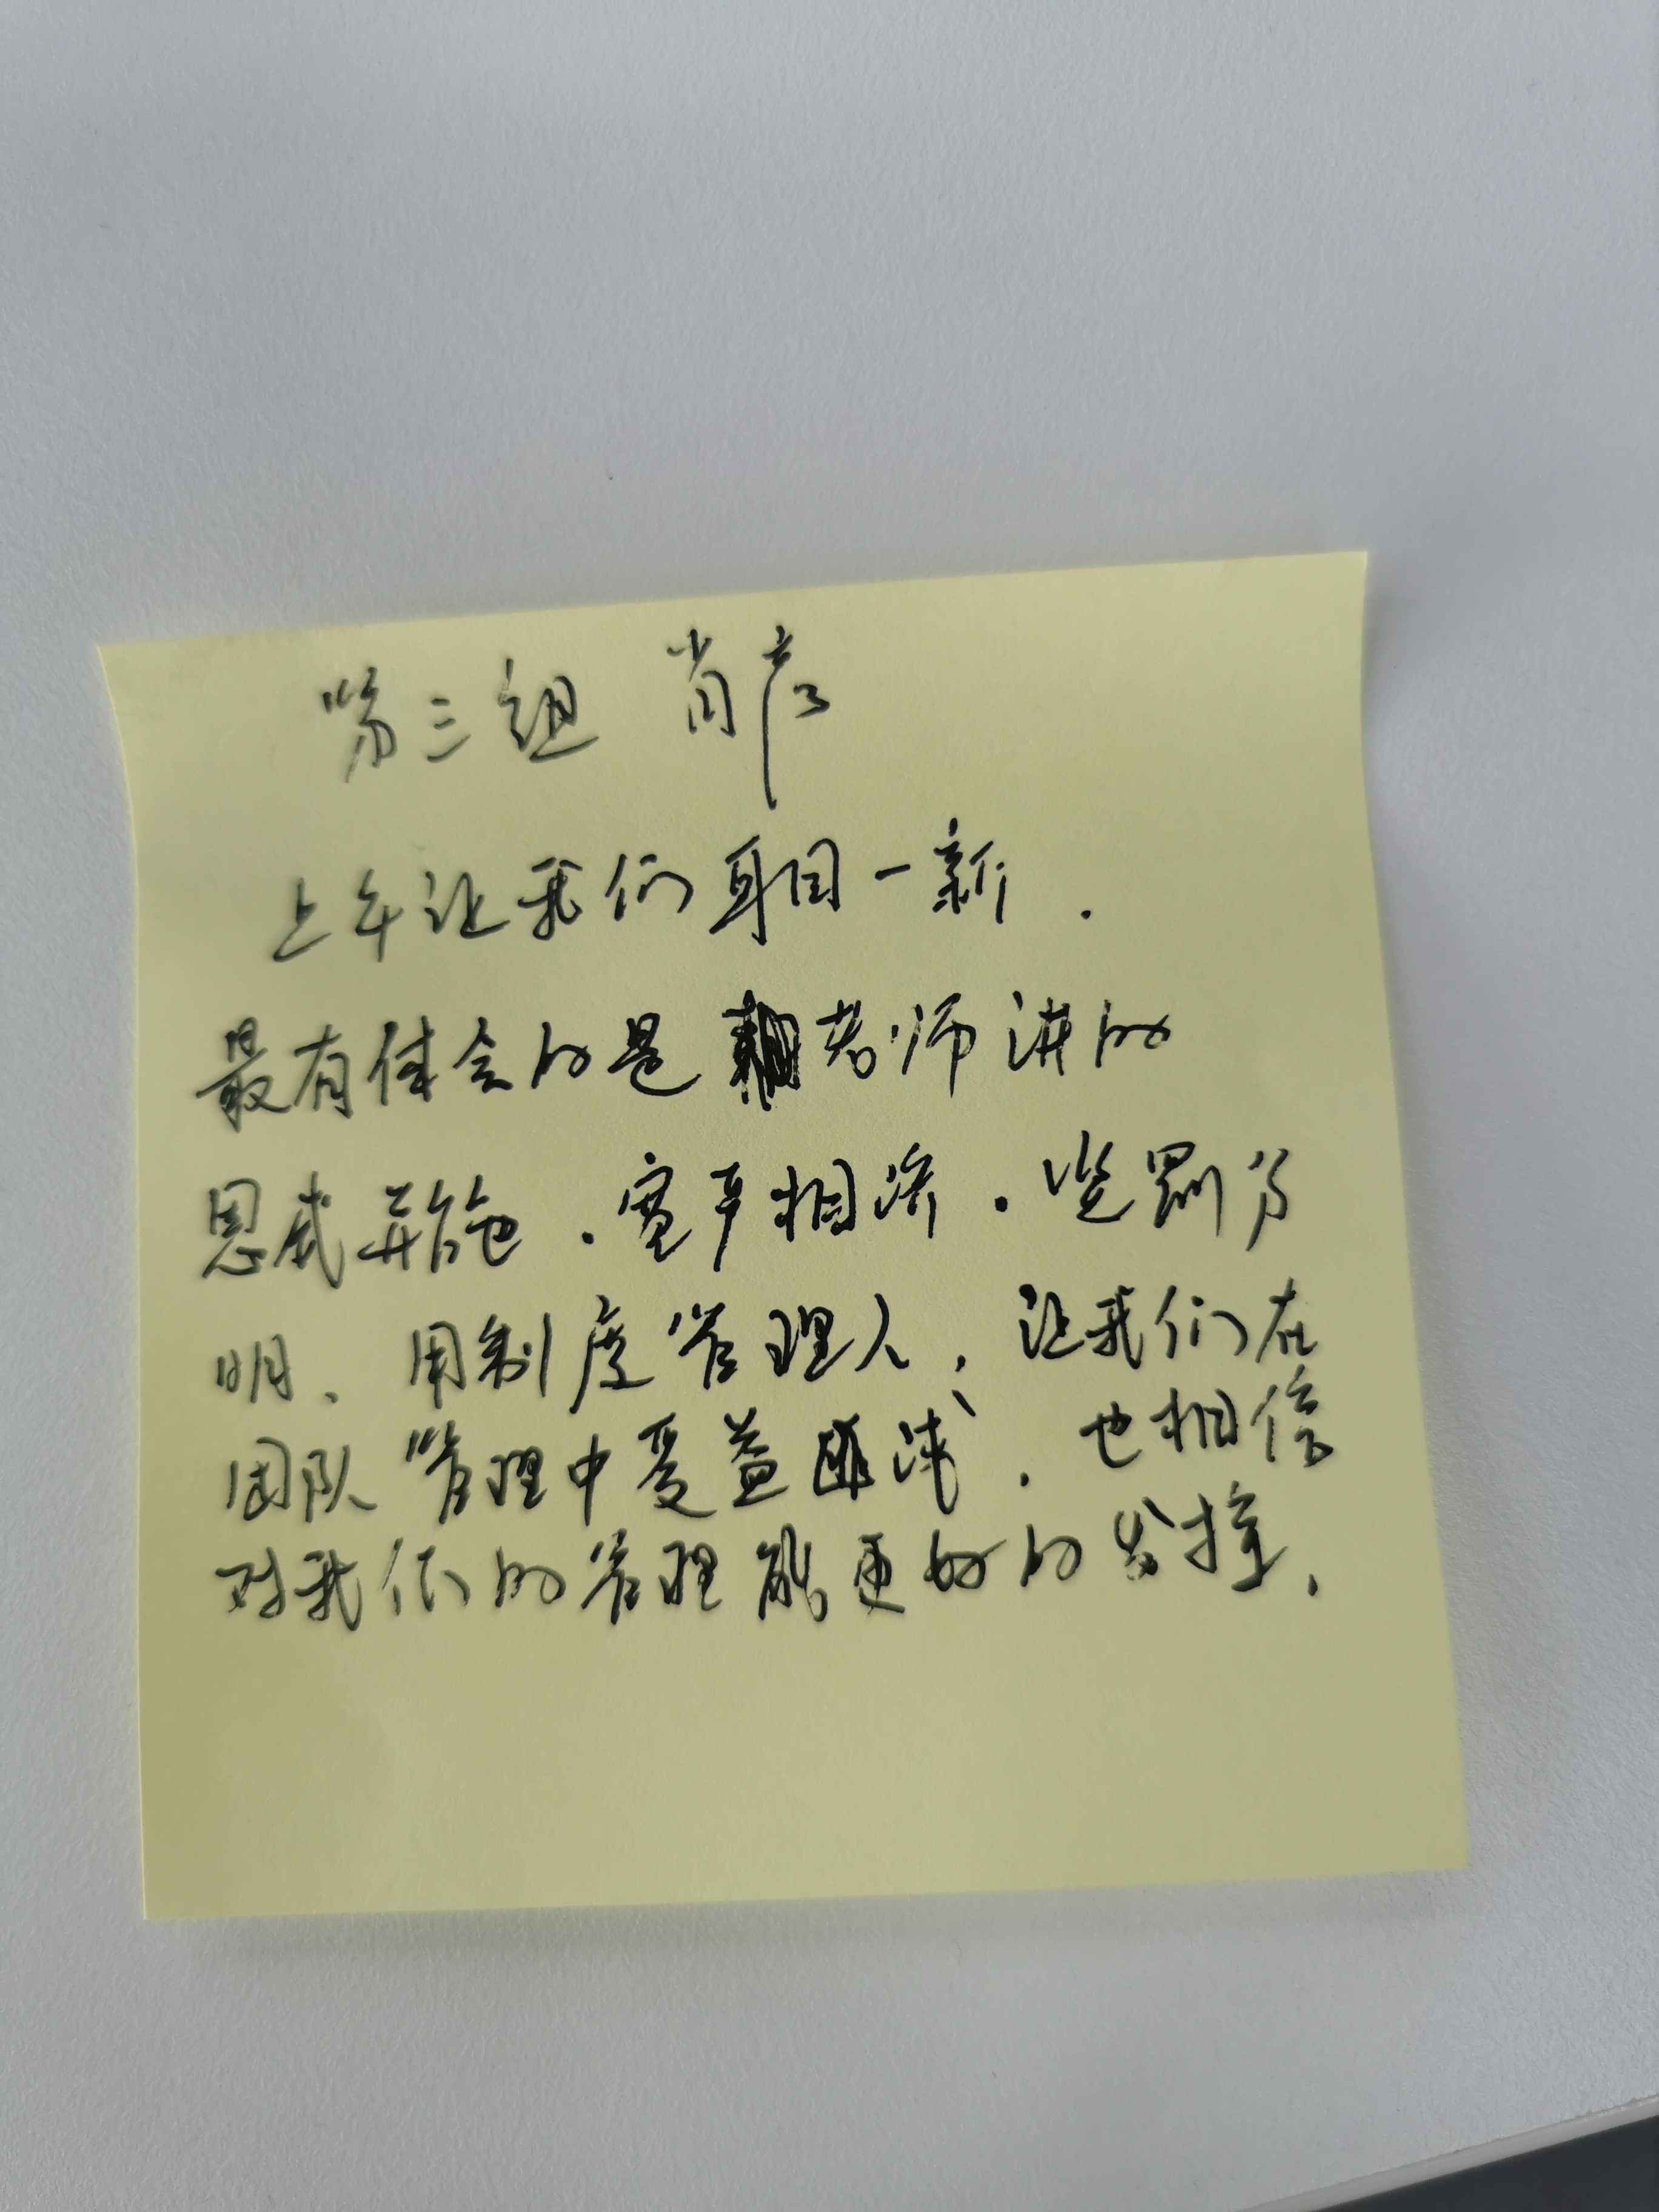 第三组 肖彦
上午让我们耳目一新.
最有体会的是老师讲的
恩威并施.宽严相济.赏罚分
明、用制度管理人,让我们在
团队管理中受益匪浅.也相信
对我们的管理能更好的发挥.